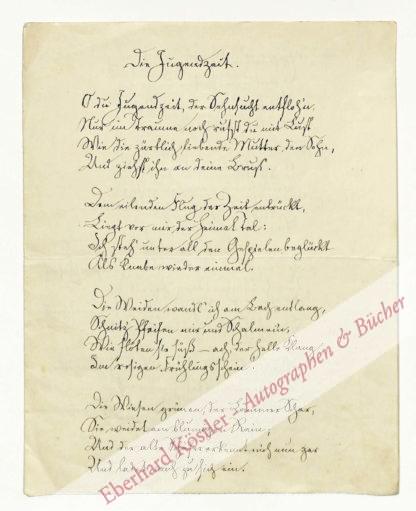 Die Jugendzeit.
O du Jugendzeit, der Sehnsucht entfloh'n.
Nur im Traume noch rufst du mit Lust
Wie die zärtlich liebende Mutter den Sohn,
Und ziehst ihn an deine Brust.
Dem eilenden Flug der Zeit entrückt,
Liegt vor mir der Heimat Tal:
Ich steh' unter all den Gespielen beglückt
Als Knabe wieder einmal.
Die Weiden wandl' ich am Bach entlang,
Schnitz Pfeifen mir und Schalmein,
Wie flöten sie süß – ach, der helle Klang
Im rosigen Frühlingsschein.
Die Wiesen grünen, der Lämmer Schar,
Sie weidet am blumigen Rain;
Und der alte erkennt mich nun gar
Und ein.
Eberhard Köstler · Autographen & Bücher